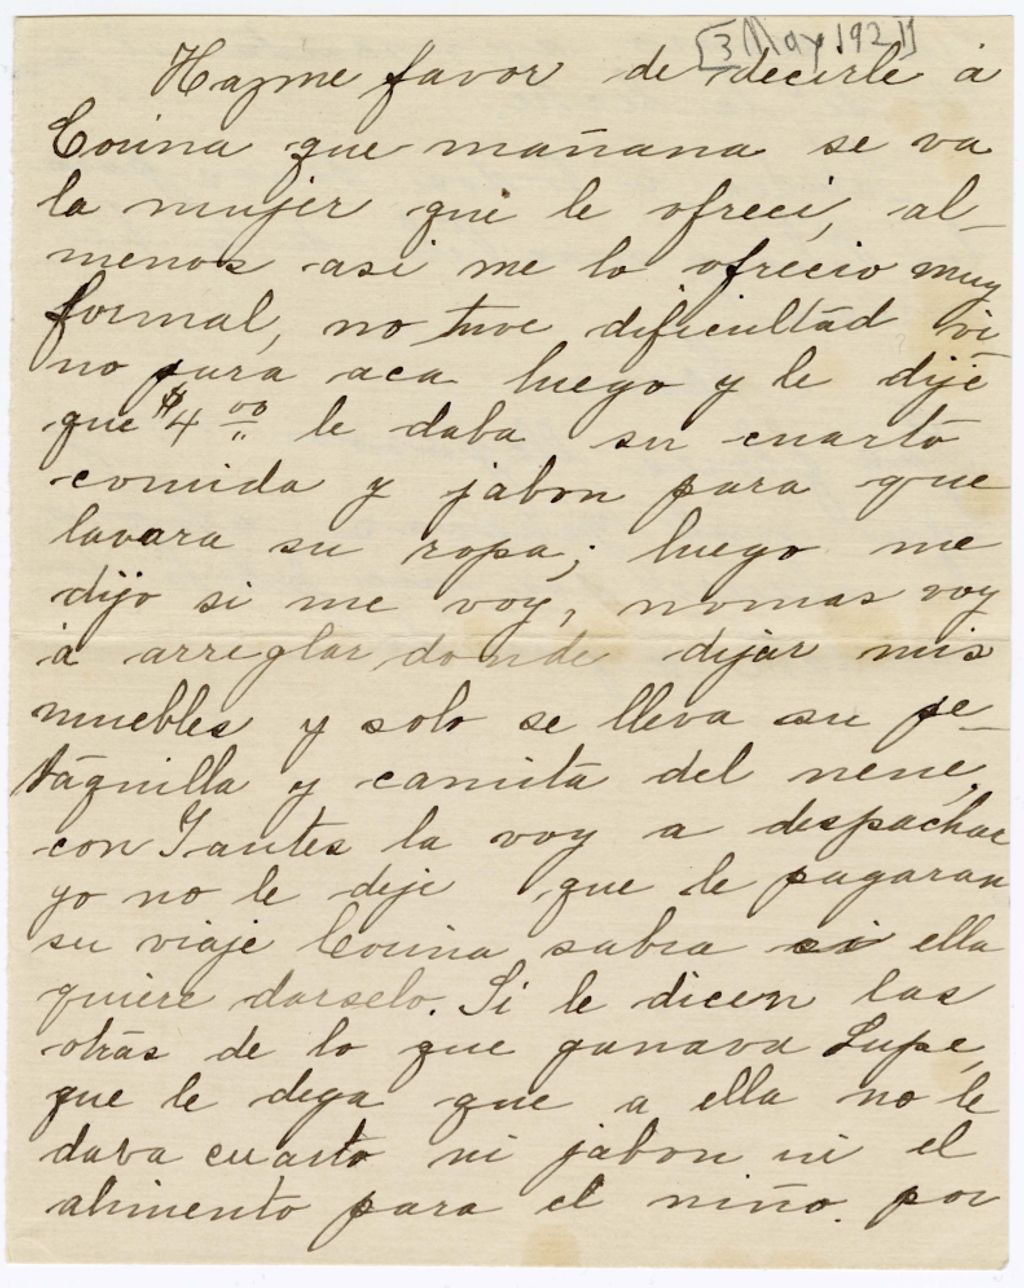 [3 May 1921]
Hazme favor de decirle á
Corina que mañana se va
la mujer que le ofreci, al-
menos asi me lo ofrecio muy
formal, no tuve dificultad vi
no para aca luego y le dije
que $4 00 le daba su cuarto
comida y jabon para que
lavara su ropa; luego me
dijo si me voy, nomas voy
á arreglar donde dijar mis
muebles y solo se lleva su pe-
táquilla y camita del nene,
con Santes la voy a despachar
yo no le dije que le pagaran
su viaje Corina sabra si ella
quiere darselo. Si le dicen las
otras de lo que ganava Lupe,
que le dega que a ella no le
dava cuarto ni jabon ni el
alimento para el niño. por